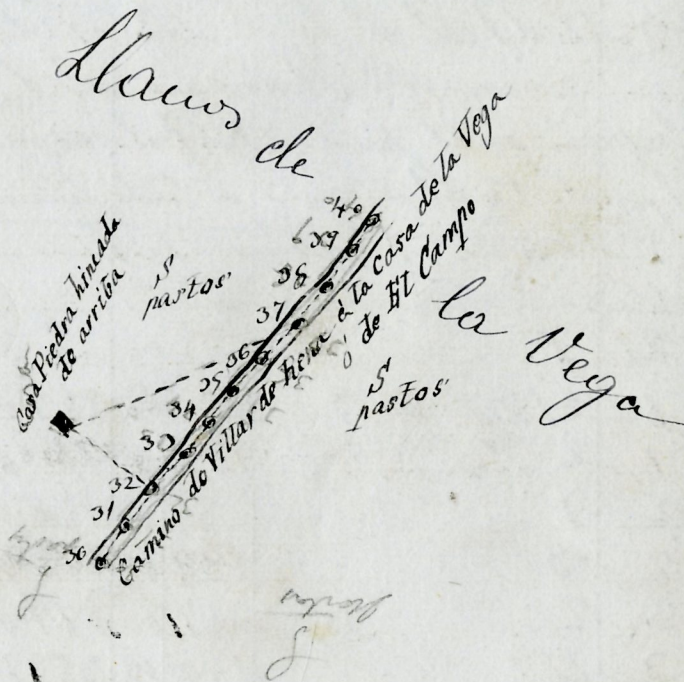 Llanos de
la Vega
Casa Piedra hincada
de arriba
S
pastos
40
39
38
37
36
35
34
32
31
30
Camino de Villar de a la casa de la Vega
ó de El Campo
S
pastos
pastos
S